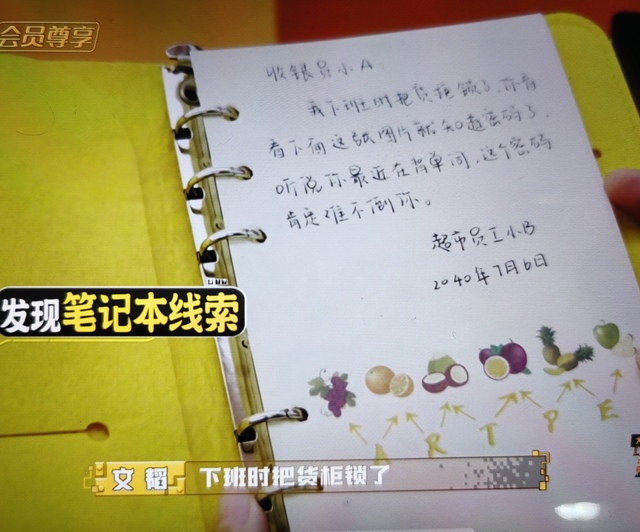 会员尊享
收银员小A:
我下班时把货柜锁了,你看
看下面这张图片就知道密码了,
听说你最近在背单词,这个密码
肯定难不倒你。
超市员工小B
2040年7月6日
发现笔记本线索
A R T P E
文韬 下班时把货柜锁了